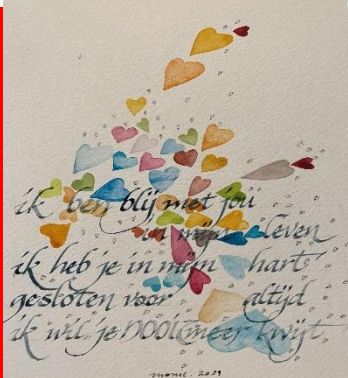 ik ben blij met jou
in mijn leven
ik heb je in mijn hart
gesloten voor altijd
ik wil je nooit meer kwijt